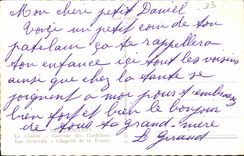 - 23
Mon cher petit Daniel
Voici un petit coin de ton
patelain ça te rappellera
ton enfance ici tout les voisins
ainsi que chez la tante se
joignent a moi pour t'embrasser
bien fort et bien le bonjour
de tous ta grand-mère
Le Couvent des Cordeliers
Vue Générale - Chapelle de la Trinité